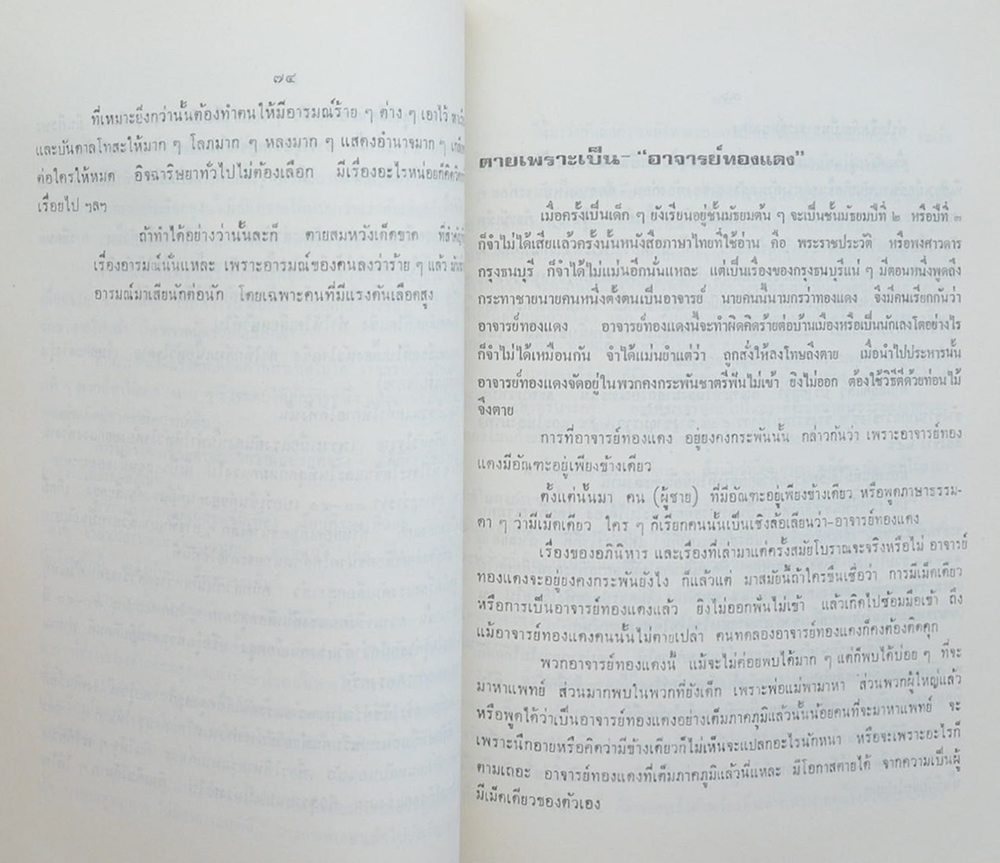 ๗๔
ที่เหมาะยิ่งกว่านั้นต้องทำตนให้มีอารมณ์ร้าย ๆ ต่าง ๆ เอาไว้
และบันดาลโทสะให้มาก ๆ โลภมาก ๆ หลงมาก ๆ แสดงอำนาจมาก ๆ
ต่อใครให้หมด อิจฉาริษยาทั่วไปไม่ต้องเลือก มีเรื่องอะไรหน่อยก็คิด
เรื่อยไป ๆลๆ
ถ้าทำได้อย่างว่านั้นละก็ ตายสมหวังเด็ดขาด
เรื่องอารมณ์นั่นแหละ เพราะอารมณ์ของคนลงว่าร้าย ๆ แล้ว
อารมณ์มาเสียนักต่อนัก โดยเฉพาะคนที่มีแรงดันเลือดสูง
ตายเพราะเป็น–"อาจารย์ทองแดง"
เมื่อครั้งเป็นเด็ก ๆ ยังเรียนอยู่ชั้นมัธยมต้น ๆ จะเป็นชั้นมัธยมปีที่ ๒ หรือปีที่ ๓
ก็จำไม่ได้เสียแล้วครั้งนั้นหนังสือภาษาไทยที่ใช้อ่าน คือ พระราชประวัติ หรือพงศาวดาร
กรุงธนบุรี ก็จำได้ไม่แม่นอีกนั่นแหละ แต่เป็นเรื่องของกรุงธนบุรีแน่ ๆ มีตอนหนึ่งพูดถึง
กระทาชายนายคนหนึ่งตั้งตนเป็นอาจารย์ นายคนนี้นามกรว่าทองแดง จึงมีคนเรียกกันว่า
อาจารย์ทองแดง อาจารย์ทองแดงนี้จะทำผิดคิดร้ายต่อบ้านเมืองหรือเป็นนักเลงโตอย่างไร
ก็จำไม่ได้เหมือนกัน จำได้แม่นยำแต่ว่า ถูกสั่งให้ลงโทษถึงตาย เมื่อนำไปประหารนั้น
อาจารย์ทองแดงจัดอยู่ในพวกคงกระพันชาตรีฟันไม่เข้า ยิงไม่ออก ต้องใช้วิธีตีด้วยท่อนไม้
จึงตาย
การที่อาจารย์ทองแดง อยู่ยงคงกระพันนั้น กล่าวกันว่า เพราะอาจารย์ทอง
แดงมีอัณฑะอยู่เพียงข้างเดียว
ตั้งแต่นั้นมา คน (ผู้ชาย) ที่มีอัณฑะอยู่เพียงข้างเดียว หรือพูดภาษาธรรม-
ดา ๆ ว่ามีเม็ดเดียว ใคร ๆ ก็เรียกคนนั้นเป็นเชิงล้อเลียนว่า–อาจารย์ทองแดง
เรื่องของอภินิหาร และเรื่องที่เล่ามาแต่ครั้งสมัยโบราณจะจริงหรือไม่ อาจารย์
ทองแดงจะอยู่ยงคงกระพันยังไง ก็แล้วแต่ มาสมัยนี้ถ้าใครขืนเชื่อว่า การมีเม็ดเดียว
หรือการเป็นอาจารย์ทองแดงแล้ว ยิงไม่ออกฟันไม่เข้า แล้วเกิดไปซ้อมมือเข้า ถึง
แม้อาจารย์ทองแดงคนนั้นไม่ตายเปล่า คนทดลองอาจารย์ทองแดงก็คงต้องติดคุก
พวกอาจารย์ทองแดงนี้ แม้จะไม่ค่อยพบได้มาก ๆ แต่ก็พบได้บ่อย ๆ ที่จะ
มาหาแพทย์ ส่วนมากพบในพวกที่ยังเด็ก เพราะพ่อแม่พามาหา ส่วนพวกผู้ใหญ่แล้ว
หรือพูดได้ว่าเป็นอาจารย์ทองแดงอย่างเต็มภาคภูมิแล้วนั้นน้อยคนที่จะมาหาแพทย์ จะ
เพราะนึกอายหรือคิดว่ามีข้างเดียวก็ไม่เห็นจะแปลกอะไรนักหนา หรือจะเพราะอะไรก็
ตามเถอะ อาจารย์ทองแดงที่เต็มภาคภูมิแล้วนี่แหละ มีโอกาสตายได้ จากความเป็นผู้
มีเม็ดเดียวของตัวเอง